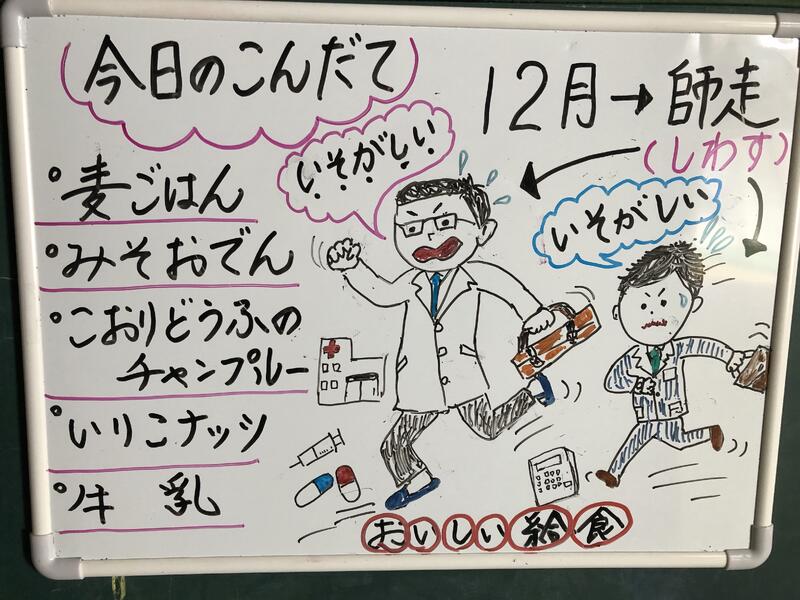 今日のこんだて
12月→師走
(しわす)
いそがしい
いそがしい
麦ごはん
みそおでん
こおりどうふの
チャンプルー
いりこナッツ
牛乳
おいしい給食